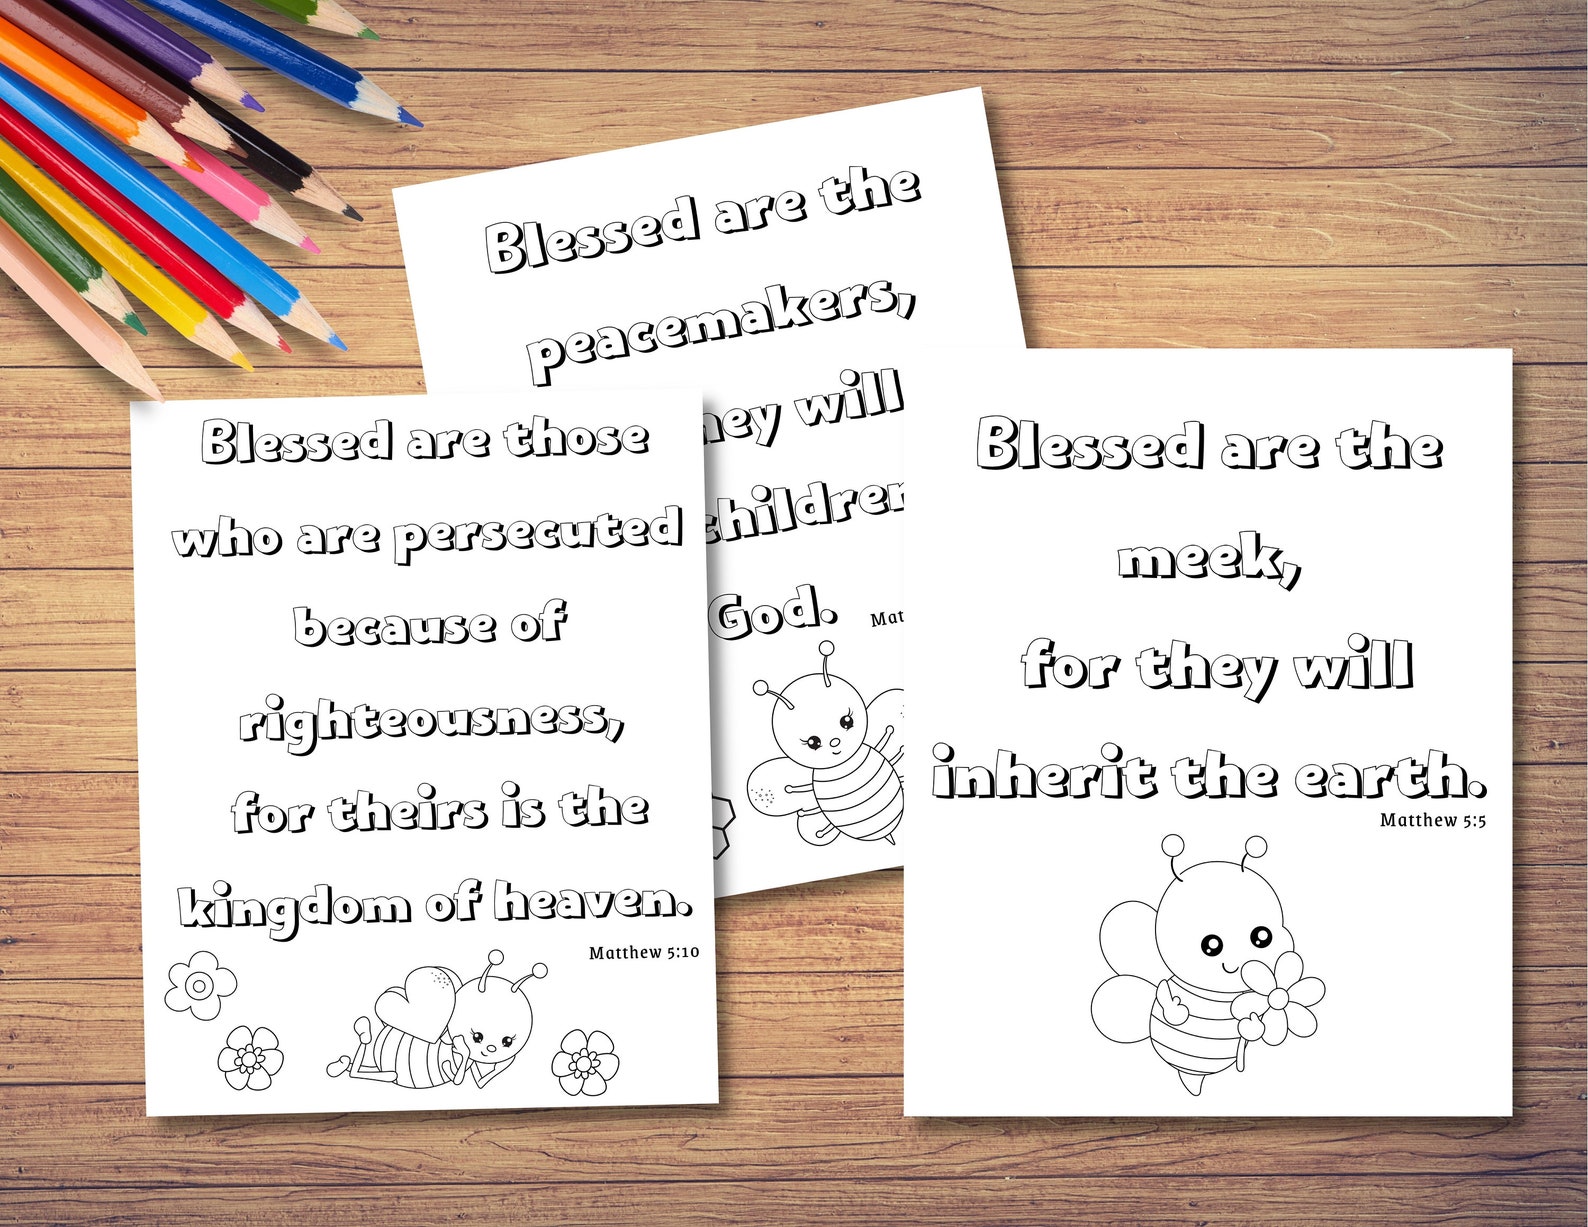 Blessed are the
peacemakers,
will
children
God.
Blessed are those
who are persecuted
because of
righteousness,
for theirs is the
kingdom of heaven.
Matthew 5:10
Blessed are the
meek,
for they will
inherit the earth.
Matthew 5:5